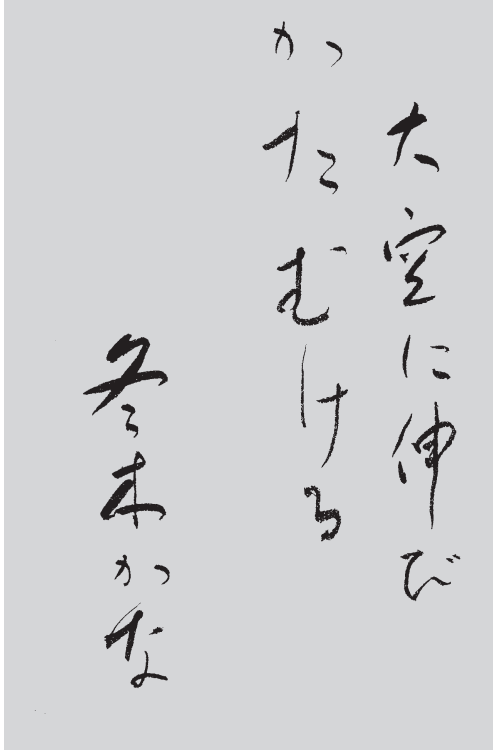 大空に伸び
かたむける
冬木かな